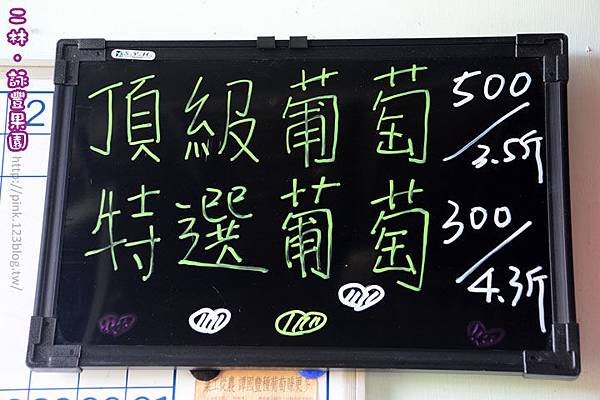 二林。詠豐果園
http://pink.123blog.tw/
2
頂級葡萄 500/3.5斤
特選葡萄 300/4.3斤